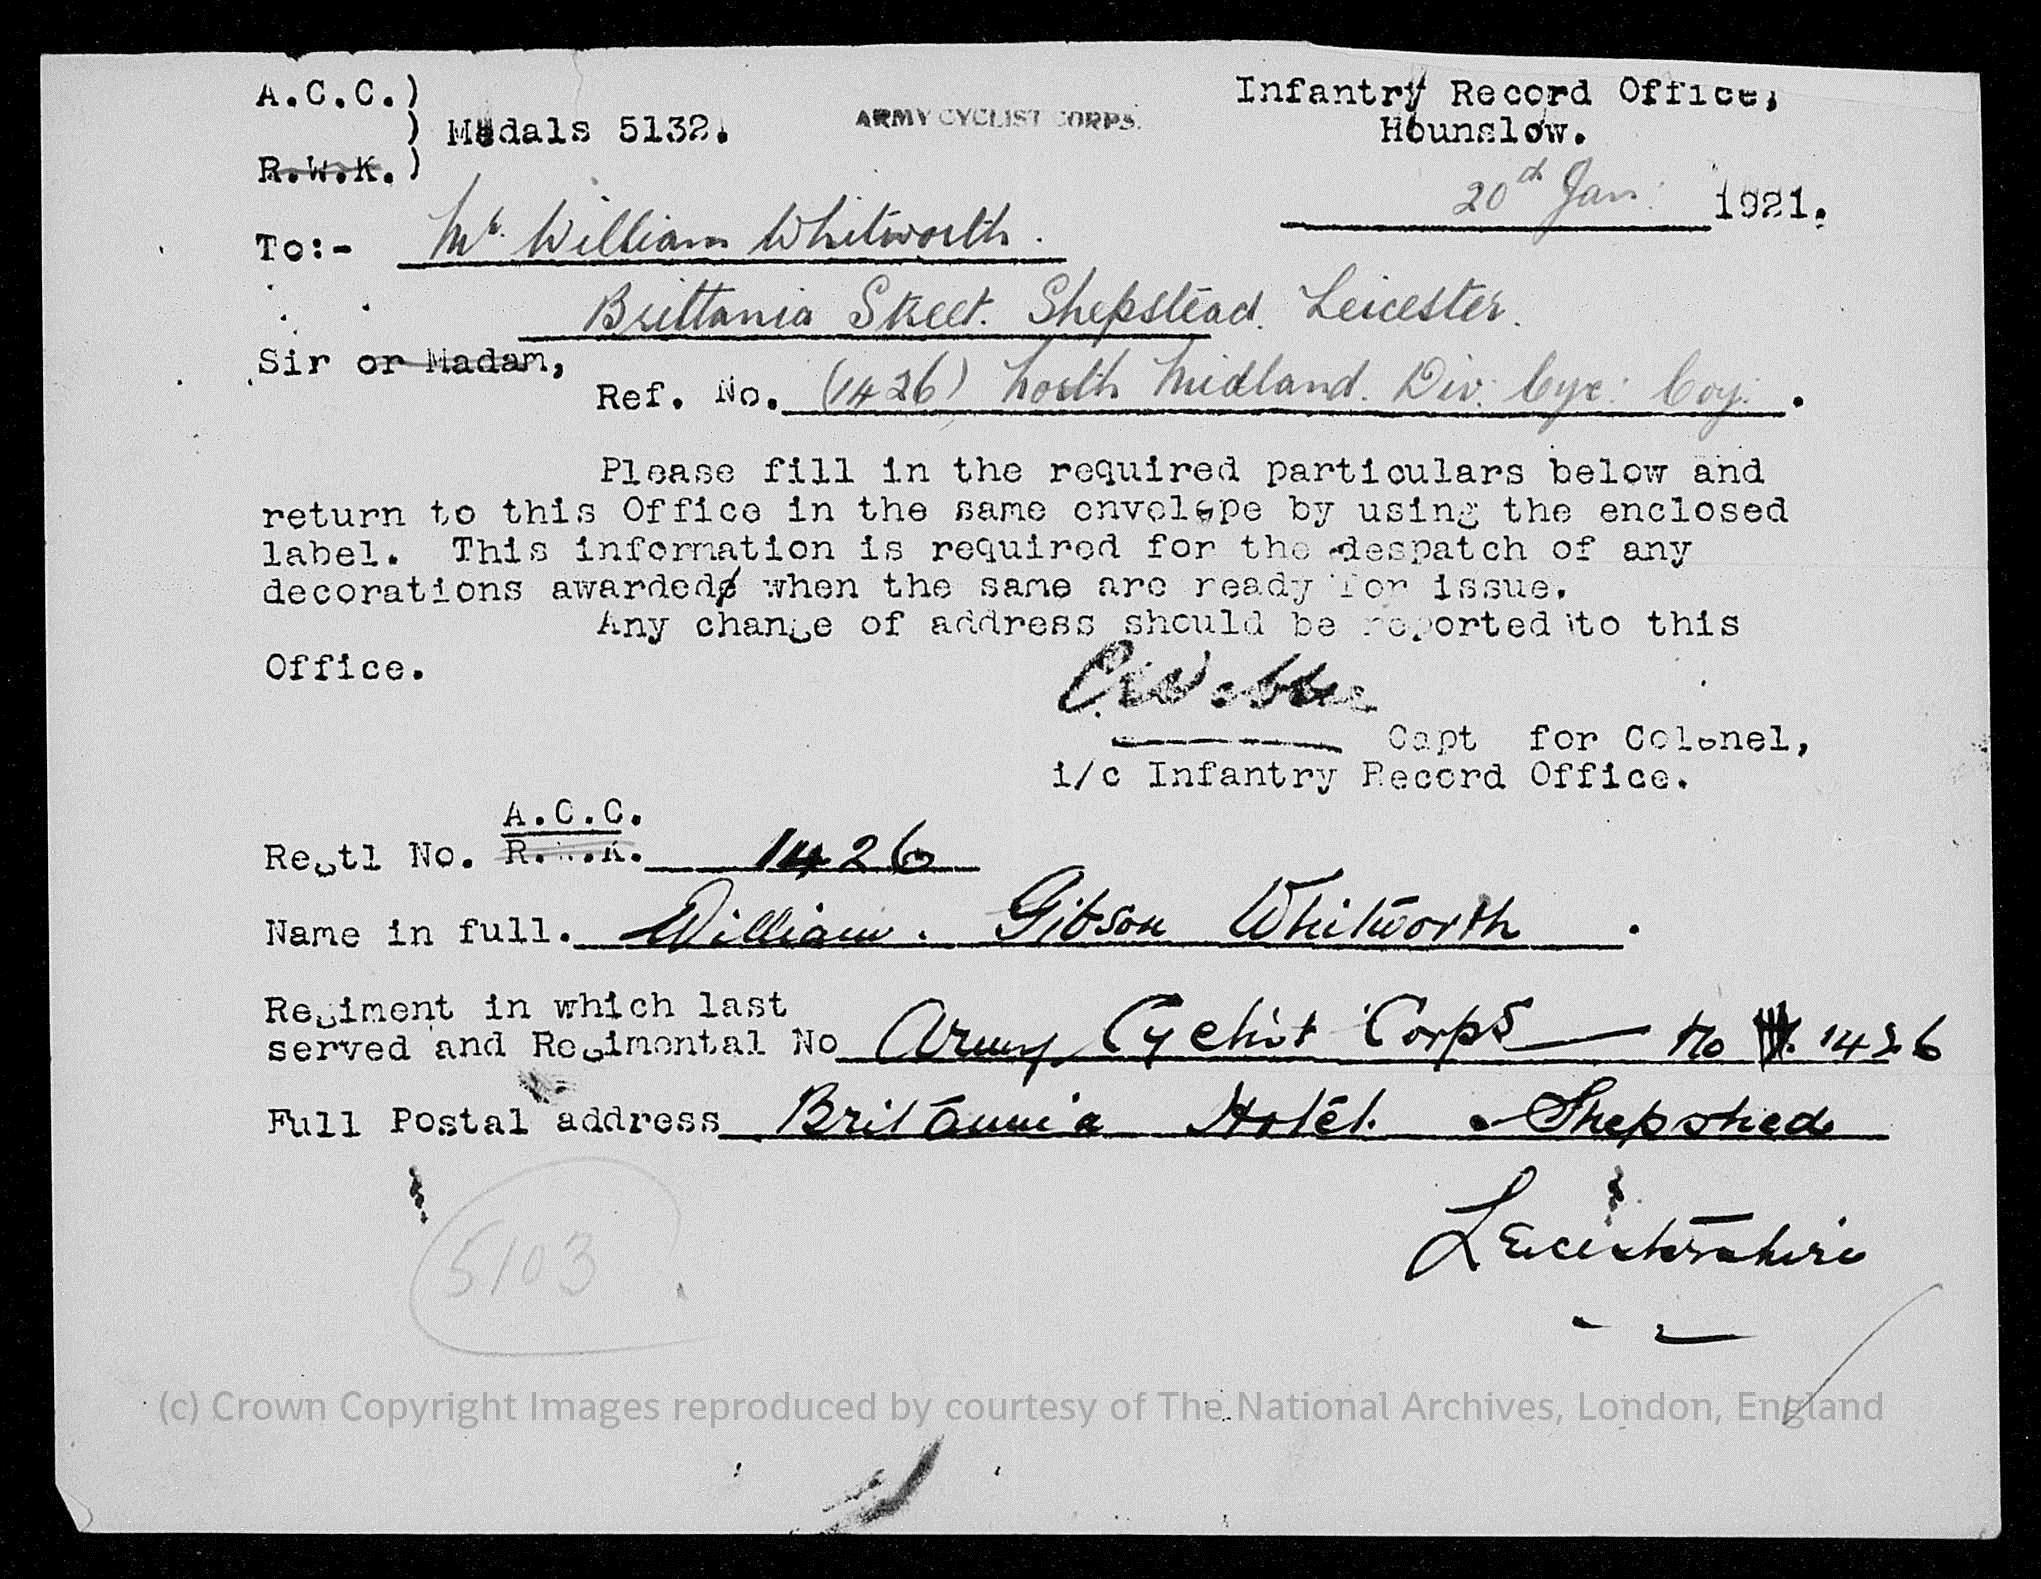 A.C.C.)
) Medals 5132.
R.W.K.)
ARMY CYCLIST CORPS.
Infantry Record Office,
Hounslow.
20th Jan: 1921.
To:- Mr. William Whitworth.
Brittania Street. Shepstead. Leicester.
Sir or Madam,
Ref. No. (1426) North Midland. Div. Cyc: Coy. .
Please fill in the required particulars below and
return to this Office in the same envelope by using the enclosed
label. This information is required for the despatch of any
decorations awarded when the same are ready for issue.
Any change of address should be reported to this
Office.
Capt for Colonel,
i/c Infantry Record Office.
A.C.C.
Regtl No. R.W.K. 1426
Name in full. William. Gibson Whitworth.
Regiment in which last
served and Regimental No Army Cyclist Corps — No 1426
Full Postal address Britannia Hotel. Shepshed
Leicestershire
5103
(c) Crown Copyright Images reproduced by courtesy of The National Archives, London, England